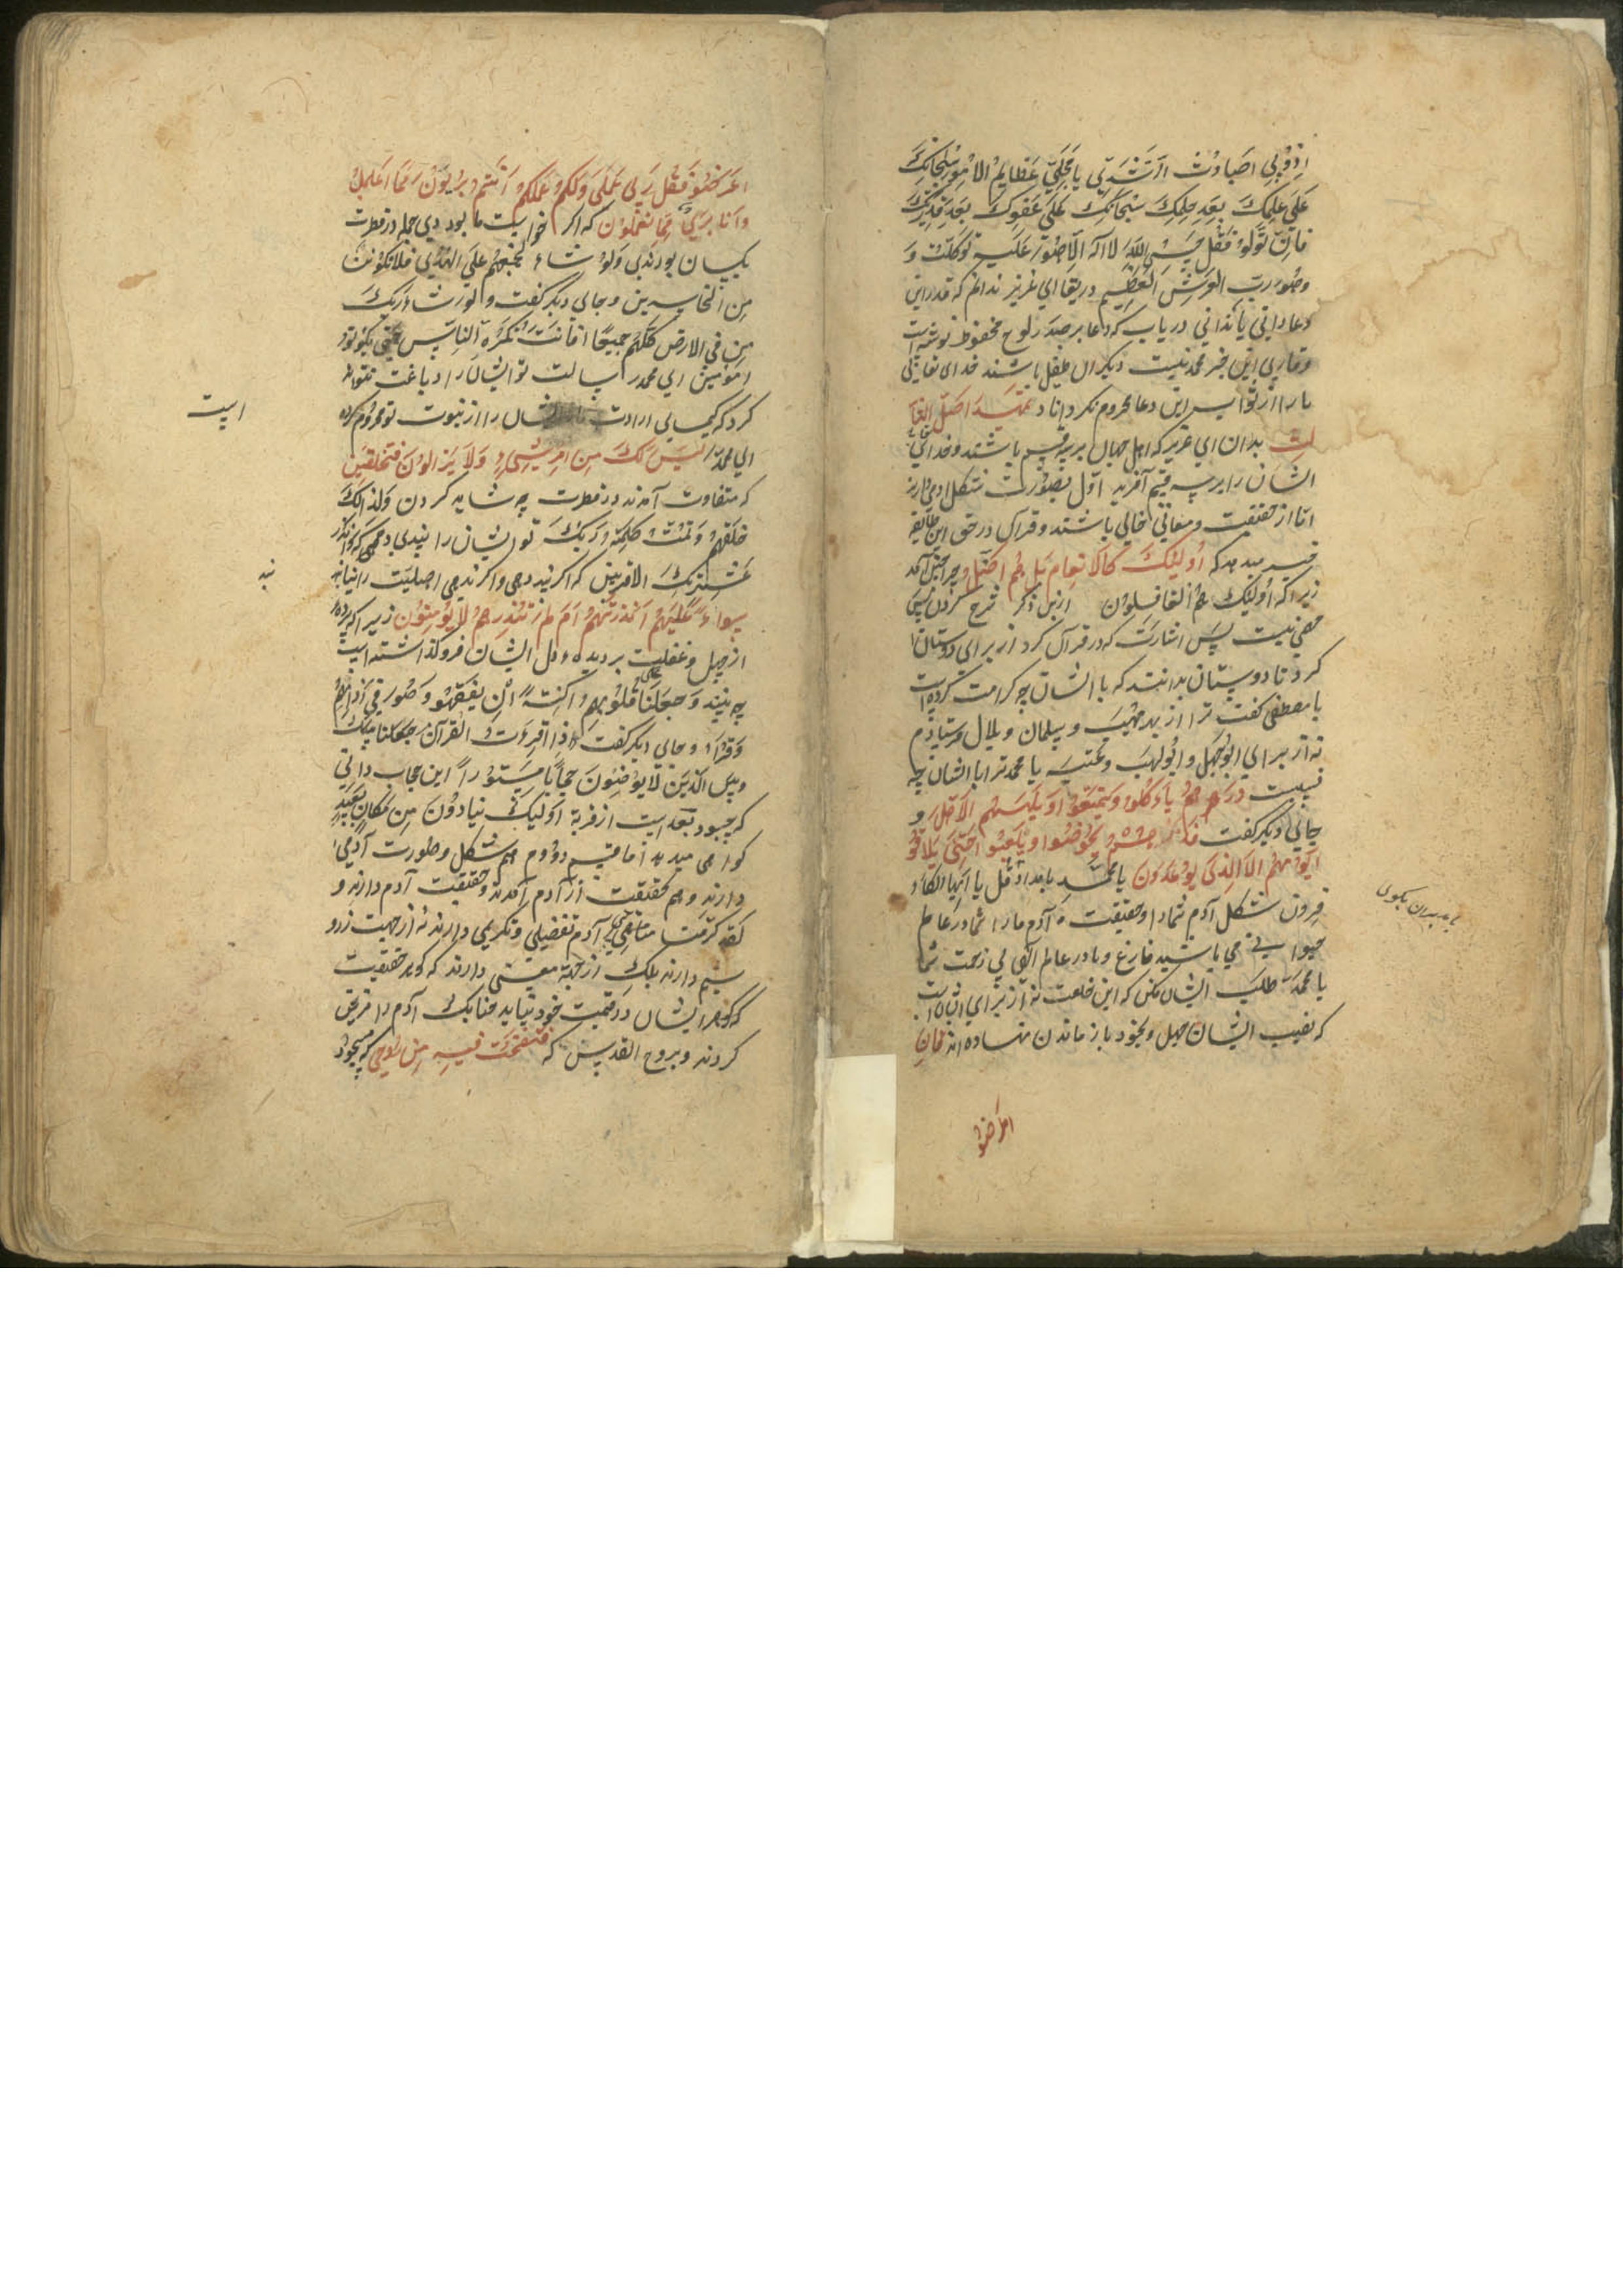 علی علمک بعد حلمک سبحانک علی عفوک بعد قدرتک
فان تولو فقل حسبی الله لا اله الا هو علیه توکلت و
وهو رب العرش العظیم دریغا ای عزیز ندانم که قدر این
دعا دانی یا ندانی دریاب که دعا بر صدر لوح محفوظ نوشته است
وقاری این جز محمد نیست دیگران طفیل باشند خدای تعالی
ما را از ثواب این دعا محروم نگرداناد تمهید اصل الثا
لث بدان ای عزیز که اهل جهان بر سه قسم باشند و خدای تعالی
ایشان را بر سه قسم آفرید اول بصورت شکل آدمی دارند
اما از حقیقت و معانی خالی باشند و قرآن در حق این طایفه
خبر میدهد که اولئک کالانعام بل هم اضل و چرا چنین آمد
زیرا که اولئک هم الغافلون ازین ذکر شرح کردن بسی
معنی نیست پس اشارت که در قرآن کرد از برای دوستان
کرد تا دوستان بدانند که با ایشان چه کرامت کرده است
با مصطفی گفت ترا از بهر صهیب و سلمان و بلال فرستادم
نه از برای ابوجهل و ابولهب و عتبه یا محمد ترا با ایشان چه
نسبت ذرهم یأکلوا ویتمتعوا ویلههم الامل و
جای دیگر گفت فذرهم یخوضوا ویلعبوا حتی یلاقوا
یومهم الذی یوعدون یا محمد بامداد قل یا ایها الکا
فرون شکل آدم شما را و حقیقت آدم ما را شما در عالم
حیوانی می باشید فارغ و ما در عالم الهی بی زحمت شما
یا محمد طلب ایشان مکن که این خلعت نه از برای ایشان است
که نصیب ایشان جهل و بخود باز ماندن نهاده اند فان
با مدبران بکوی
اعرضوا
اعرضو فقل لی عملی ولکم عملکم انتم بریون مما اعمل
وانا بری مما تعملون که اگر خواست ما بودی جمله در فطرت
یکسان بودندی ولو شاء لجمعهم علی الهدی فلا تکونن
من الخاسرین و جای دیگر گفت و لو شاء ربک
من فی الارض کلهم جمیعا افانت تکره الناس حتی یکونو
امومنین ای محمد رسالت تو ایشان را دباغت نتواند
کرد که کیمیای ارادت ما ایشان را از نبوت تو محروم کرده
است
ای محمد لیس لک من الامر شیء ولا یزالون مختلفین
که متفاوت آمدند در فطرت چه شاید کردن ولذالک
خلقهم وتمت کلمة ربک تو ایشان را پندی دهی که وانذر
عشیرتک الاقربین که اگر پند دهی واگر ندهی اصلیت را نیابند
سواء علیهم انذرتهم ام لم تنذرهم لا یومنون زیرا که پرده
از جهل و غفلت بر دیده و دل ایشان فرو گذاشته است
چه بینند وجعلنا علی قلوبهم اکنة ان یفقهو وهو فی آذانهم
وقرا و جای دیگر گفت واذا قرءت القرآن جعلنا بینک
وبین الذین لا یومنون حجابا مستورا این حجاب دانی
که چبود بعد است از قربة اولئک ینادون من مکان بعید
گواهی میدهد اما قسم دووم هم شکل و صورت آدمی
دارند و هم بحقیقت از آدم آمدند و حقیقت آدم دارند و
لقد کرمنا بنی آدم تفضیلی و تکریمی دارند نه از جهت زر و
سیم دارند بلک از جهة معنی دارند که گوهر حقیقت
که گوهر ایشان در قیمت خود نیاید چنانک آدم را مزین
کردند و بروح القدس که فنفخت فیه من روحی که مسجود